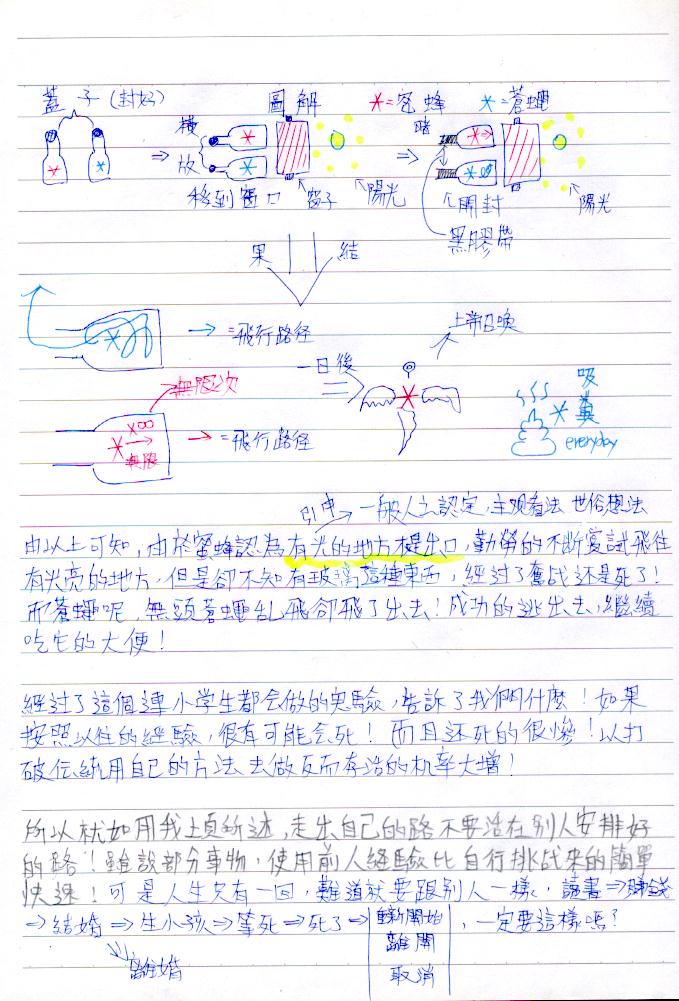 蓋子(封好)
圖解
*=蜜蜂 *=蒼蠅
橫放
⇒
移到窗口
窗子
陽光
⇒
暗
開封
黑膠帶
陽光
結果
→=飛行路径
無限次
8×
無限
→=飛行路径
一日後
上帝召喚
吸糞
everyday
引申→一般人之認定,主观看法 世俗想法
由以上可知,由於蜜蜂認為有光的地方才是出口,勤勞的不斷嘗試飛往
有光亮的地方,但是卻不知有玻璃這種東西,經过了奮战还是死了!
而蒼蠅呢,無頭蒼蠅乱飛卻飛了出去!成功的逃出去,繼續
吃它的大便!
經过了這個連小学生都会做的实驗,告訴了我們什麼!如果
按照以往的經驗,很有可能会死!而且还死的很慘!以打
破传統用自己的方法去做反而存活的机率大增!
所以就如用我上頁所述,走出自己的路不要活在別人安排好
的路!雖說部分事物,使用前人經驗比自行挑战來的簡單
快速!可是人生只有一回,難道就要跟別人一樣,讀書⇒賺錢
⇒結婚⇒生小孩⇒等死⇒死了⇒ 重新開始 ,一定要這樣嗎?
離開
離婚
取消